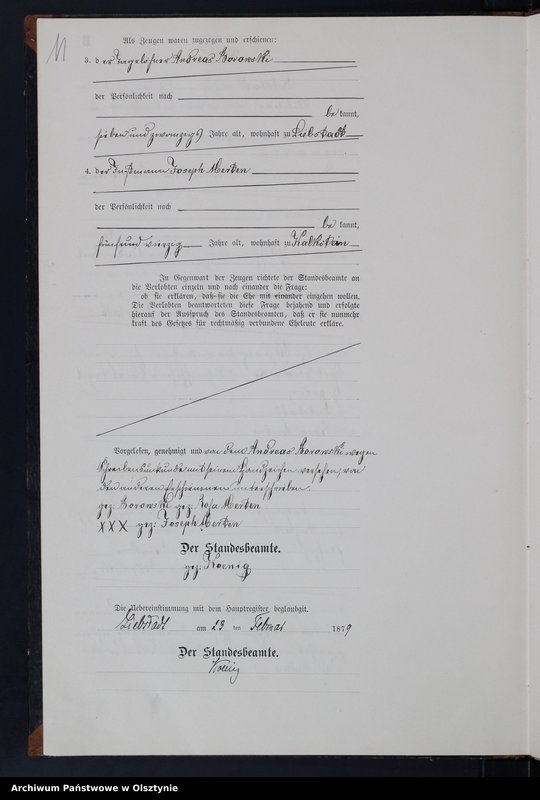 11
Als Zeugen waren zugezogen und erschienen:
3. der Tagelöhner Andreas Borowski
der Persönlichkeit nach
bekannt,
sieben und zwanzig Jahre alt, wohnhaft zu Liebstadt
4. der Instmann Joseph Merten
der Persönlichkeit nach
bekannt,
fünf und vierzig Jahre alt, wohnhaft zu Kalkstein
In Gegenwart der Zeugen richtete der Standesbeamte an
die Verlobten einzeln und nach einander die Frage:
ob sie erklären, daß sie die Ehe mit einander eingehen wollen.
Die Verlobten beantworteten diese Frage bejahend und erfolgte
hierauf der Ausspruch des Standesbeamten, daß er sie nunmehr
kraft des Gesetzes für rechtmäßig verbundene Eheleute erkläre.
Vorgelesen, genehmigt und von dem Andreas Borowski wegen
Schreibensunkunde mit seinem Handzeichen versehen, von
den anderen Erschienenen unterschrieben.
gez: Borowski gez: Rosa Merten
XXX gez: Joseph Merten
Der Standesbeamte.
gez: Koenig
Die Uebereinstimmung mit dem Hauptregister beglaubigt.
Liebstadt am 23 ten Februar 1879
Der Standesbeamte.
Koenig
Archiwum Państwowe w Olsztynie